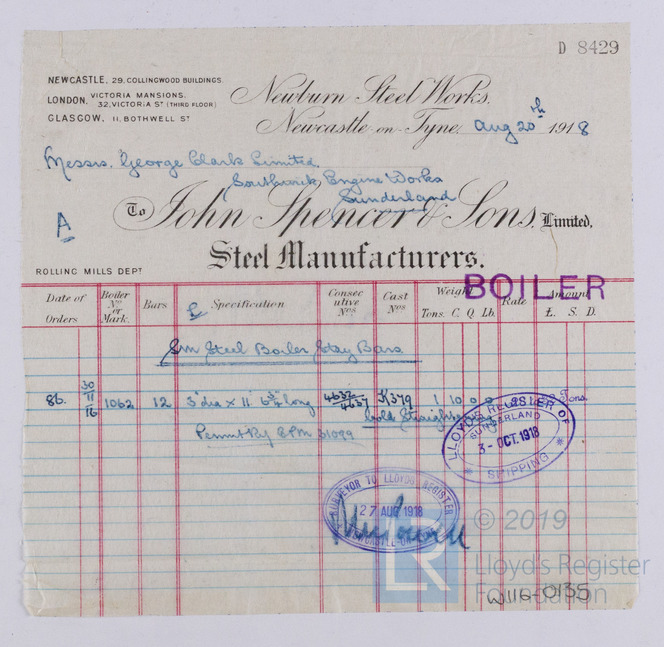 D 8429
NEWCASTLE, 29. COLLINGWOOD BUILDINGS.
LONDON, VICTORIA MANSIONS, 32, VICTORIA ST (THIRD FLOOR)
GLASGOW, 11, BOTHWELL ST
Newburn Steel Works.
Newcastle-on-Tyne, Aug 20th 1918
Messrs. George Clark Limited.
Southwick Engine Works
Sunderland
A
To John Spencer & Sons, Limited,
Steel Manufacturers.
ROLLING MILLS DEPT
BOILER
Date of Orders Boiler No or Mark. Bars Specification Consecutive Nos Cast Nos Weight Tons. C. Q. Lb. Rate Amount £. S. D.
Sm Steel Boiler Stay Bars
86. 30/11/16 1062 12 3" dia x 11' 6 long 4632/4637 K379 1 10 0 0 Tons.
Cold Straightening
Permit By 31099
LLOYD'S REGISTER OF SHIPPING
SUNDERLAND
3-OCT.1918
SURVEYOR TO LLOYDS REGISTER
27 AUG 1918
NEWCASTLE-ON-
LR
© 2019
Lloyd's Register
Foundation
W116-0135